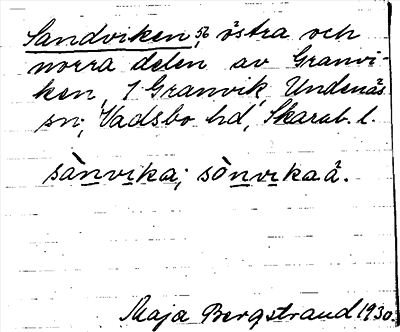 Sandviken, östra och
norra delen av Granvi-
ken, 1 Granvik, Undenäs
sn, Vadsbo hd, Skarab. l.
sànvika; sònvikaå.
Maja Bergstrand 1930.